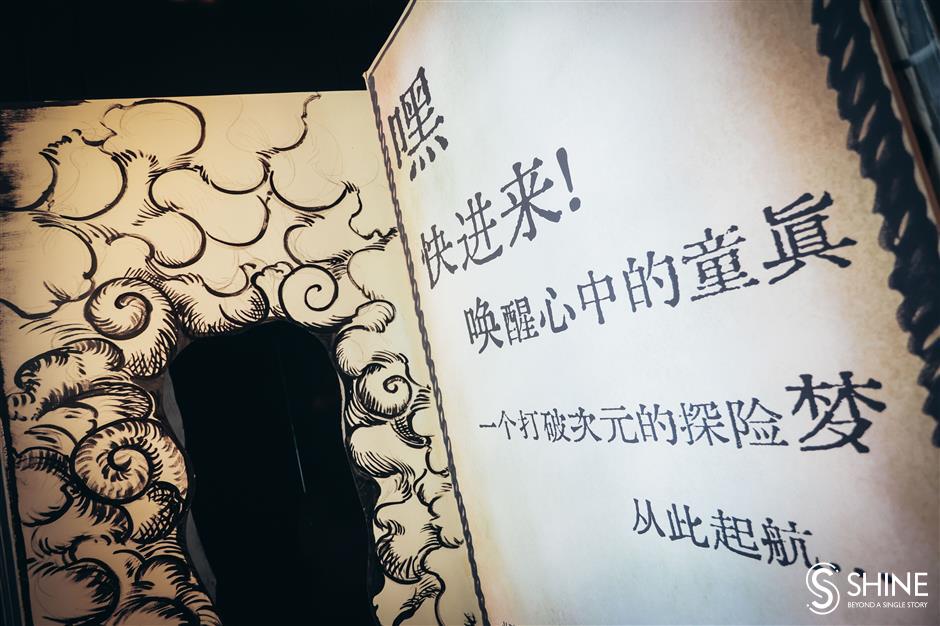 嘿
快进来!
唤醒心中的童真
一个打破次元的探险梦
从此起航...
SHINE
BEYOND A SINGLE STORY